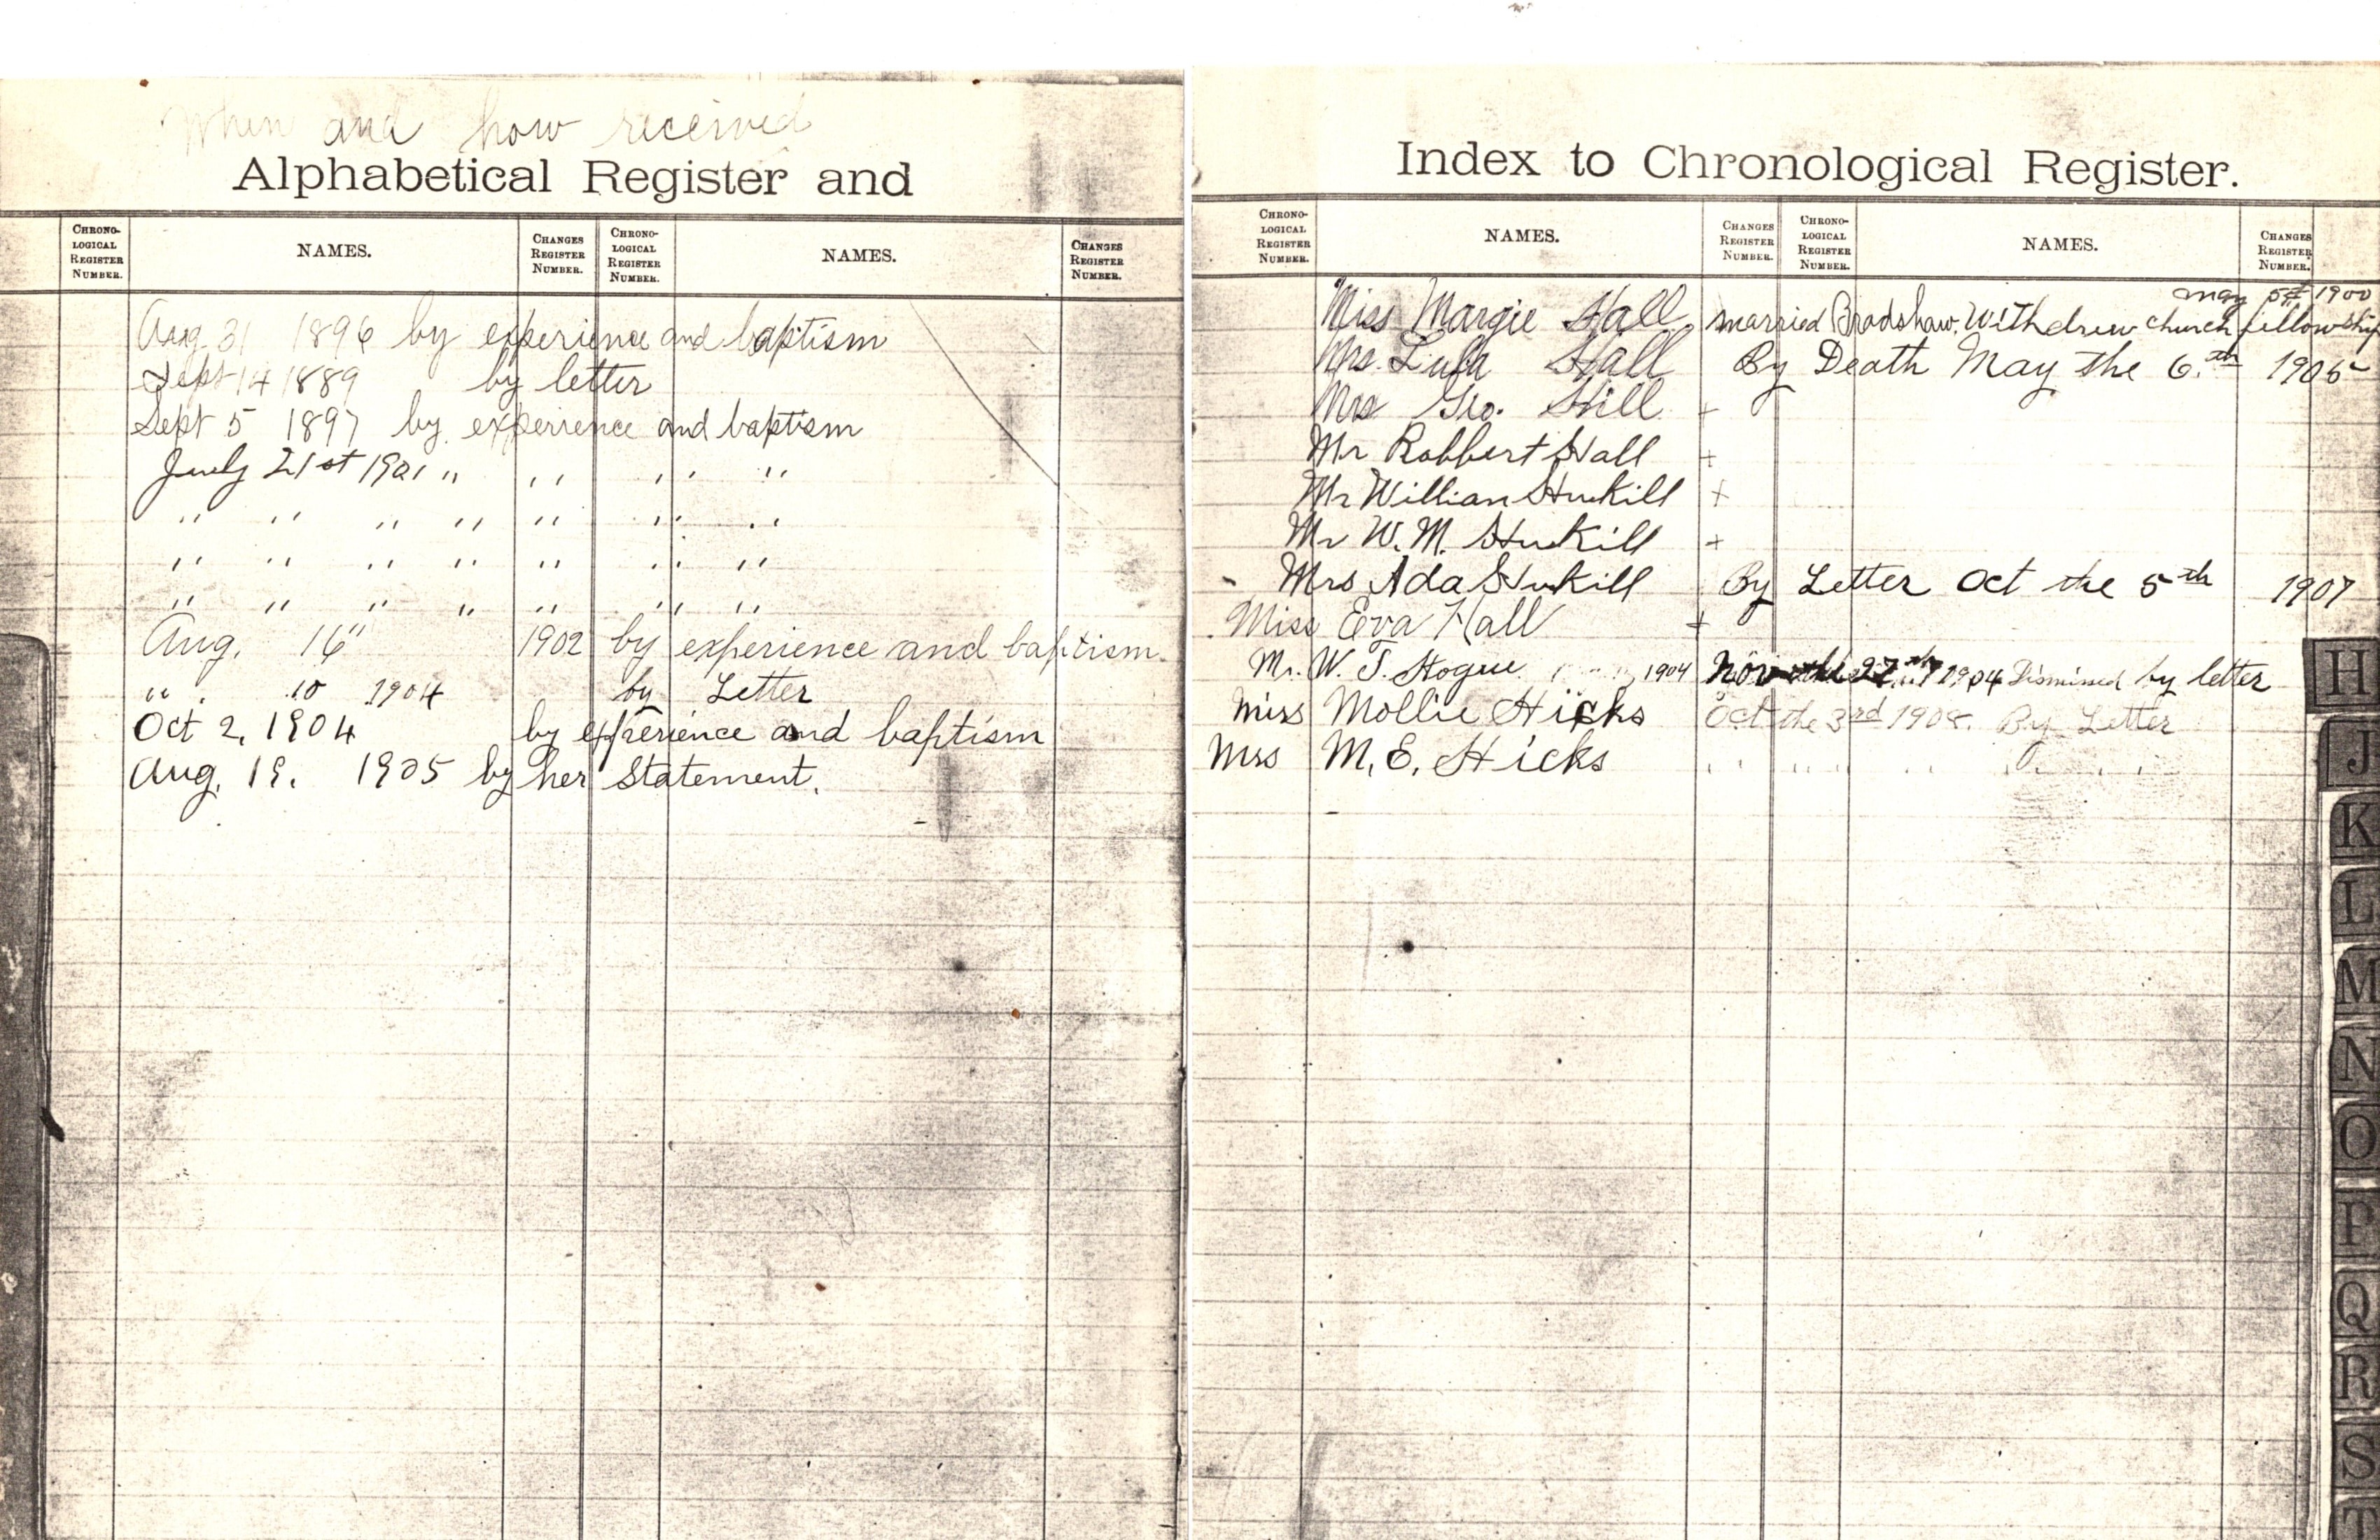 When and how received
Alphabetical Register and
CHRONO-LOGICAL REGISTER NUMBER. NAMES. CHANGES REGISTER NUMBER. CHRONO-LOGICAL REGISTER NUMBER. NAMES. CHANGES REGISTER NUMBER.
Aug. 31 1896 by experience and baptism
Sept 14 1889 by letter
Sept 5 1897 by experience and baptism
July 21st 1901 " " " "
" " " " " " "
" " " " " " "
" " " " " " "
Aug. 16" 1902 by experience and baptism
" 10 1904 by Letter
Oct 2, 1904 by experience and baptism
Aug. 19. 1905 by her Statement.
Index to Chronological Register.
CHRONO-LOGICAL REGISTER NUMBER. NAMES. CHANGES REGISTER NUMBER. CHRONO-LOGICAL REGISTER NUMBER. NAMES. CHANGES REGISTER NUMBER.
may 5th 1900
Miss Margie Hall married Bradshaw. Withdrew church fellowship
Mrs. Lula Hall By Death May the 6.th 1906
Mrs Geo. Hill +
Mr Robbert Hall +
Mr Willian Hukill +
Mr W. M. Hukill +
Mrs Ada Hukill By Letter Oct the 5th 1907
Miss Eva Hall +
Mr. W. T. Hogue 1904 Nov the 27th 1904 Dismissed by letter
Miss Mollie Hicks Oct the 3rd 1908. By Letter
Mrs M. E. Hicks " " " " " "
H
J
K
L
M
N
O
P
Q
R
S
T